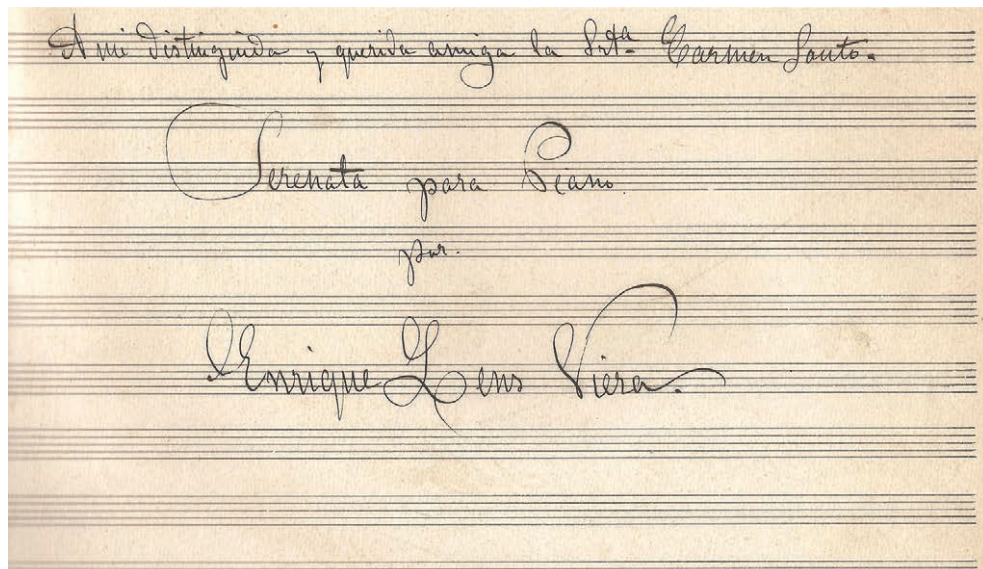 A mi distinguida y querida amiga la Srta. Carmen Souto.
Serenata para Piano
por.
Enrique Lens Viera.